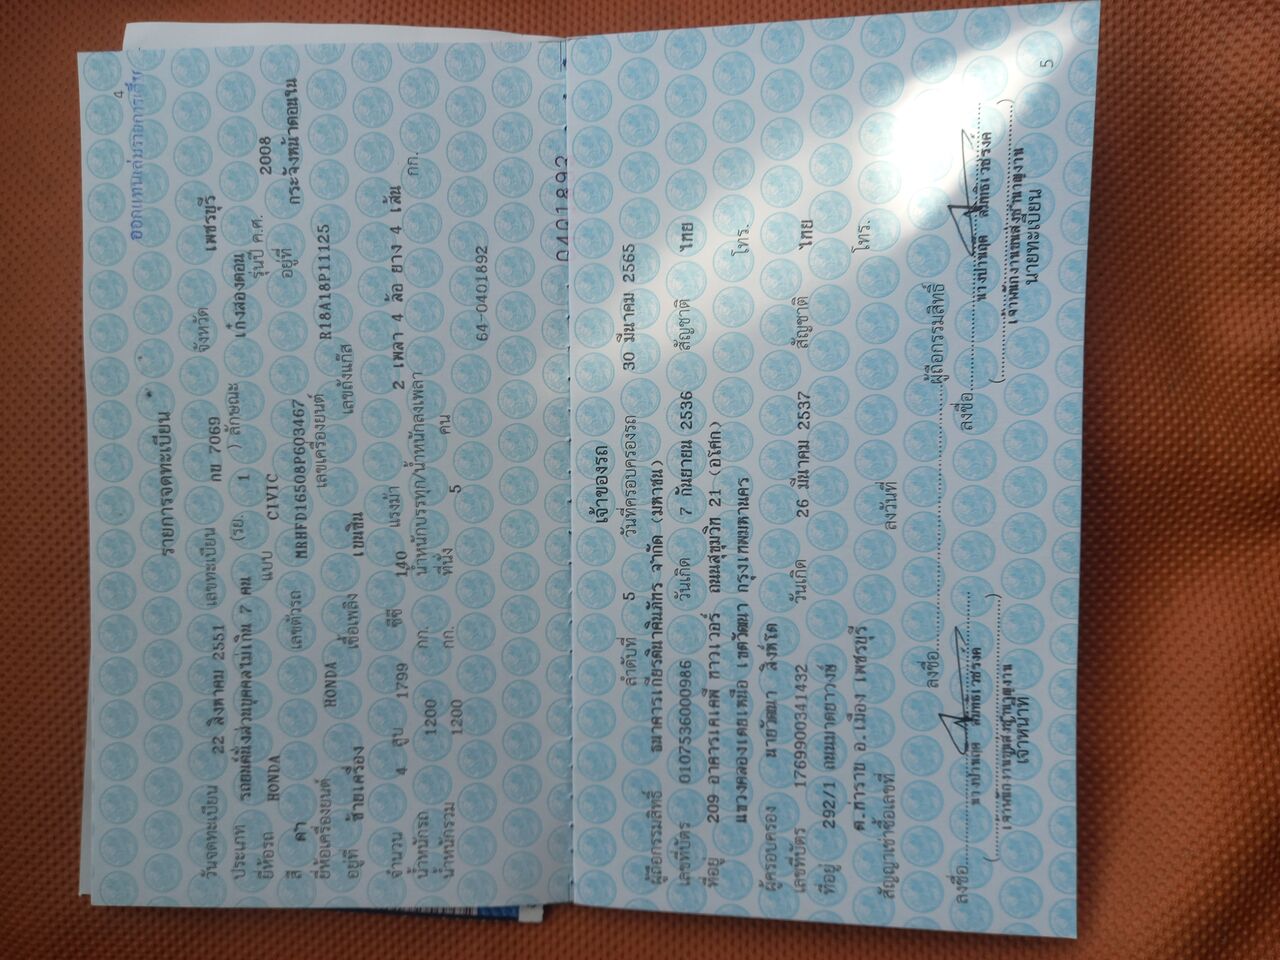 4
ออกแทนเล่มรายการเต็ม
รายการจดทะเบียน
วันจดทะเบียน 22 สิงหาคม 2551 เลขทะเบียน กข 7069 จังหวัด เพชรบุรี
ประเภท รถยนต์นั่งส่วนบุคคลไม่เกิน 7 คน (รย. 1 ) ลักษณะ เก๋งสองตอน
ยี่ห้อรถ HONDA แบบ CIVIC รุ่นปี ค.ศ. 2008
สี ดำ เลขตัวรถ MRHFD16508P603467 อยู่ที่ กระจังหน้าตอนใน
ยี่ห้อเครื่องยนต์ HONDA เลขเครื่องยนต์ R18A18P11125
อยู่ที่ ซ้ายเครื่อง เชื้อเพลิง เบนซิน เลขถังแก๊ส
จำนวน 4 สูบ 1799 ซีซี 140 แรงม้า 2 เพลา 4 ล้อ ยาง 4 เส้น
น้ำหนักรถ 1200 กก. น้ำหนักบรรทุก/น้ำหนักลงเพลา กก.
น้ำหนักรวม 1200 กก. ที่นั่ง 5 คน
64-0401892
0401892
เจ้าของรถ
ลำดับที่ 5 วันที่ครอบครองรถ 30 มีนาคม 2565
ผู้ถือกรรมสิทธิ์ ธนาคารเกียรตินาคินภัทร จำกัด (มหาชน)
เลขที่บัตร 0107536000986 วันเกิด 7 กันยายน 2536 สัญชาติ ไทย
ที่อยู่ 209 อาคารเคเคพี ทาวเวอร์ ถนนสุขุมวิท 21 (อโศก)
แขวงคลองเตยเหนือ เขตวัฒนา กรุงเทพมหานคร โทร.
ผู้ครอบครอง นายวัฒนา สิงห์โต
เลขที่บัตร 1769900341432 วันเกิด 26 มีนาคม 2537 สัญชาติ ไทย
ที่อยู่ 292/1 ถนนมาตยาวงษ์
ต.ท่าราบ อ.เมือง เพชรบุรี โทร.
สัญญาเช่าซื้อเลขที่ ลงวันที่
ลงชื่อ ผู้ถือกรรมสิทธิ์
ลงชื่อ ลงชื่อ
เจ้าพนักงานขนส่งชำนาญงาน เจ้าพนักงานขนส่งชำนาญงาน
เจ้าหน้าที่ นายทะเบียน
5